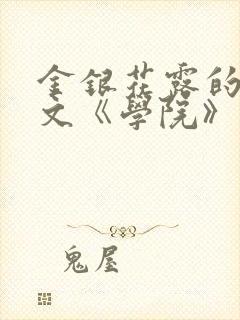 金銀花露的
文《學院》
鬼屋